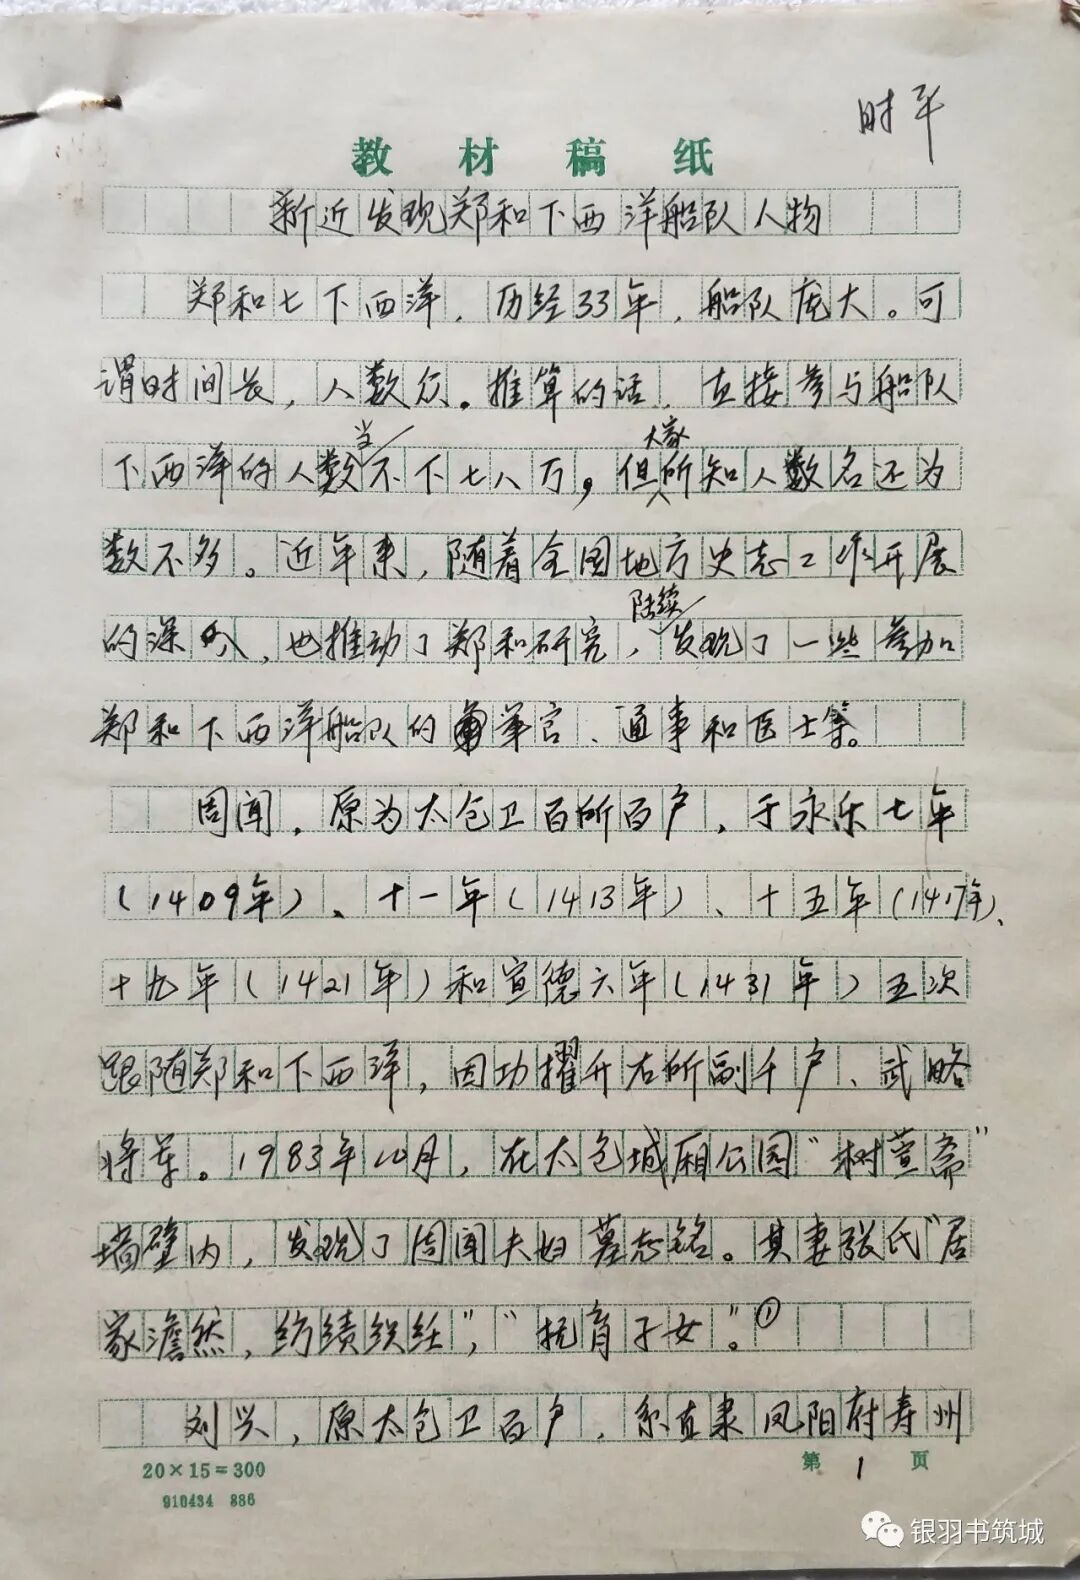 时平
教材稿纸
新近发现郑和下西洋船队人物
郑和七下西洋，历经33年，船队庞大。可
谓时间长，人数众。推算的话，直接参与船队
下西洋的人数当不下七八万，但大家所知人数名还为
数不多。近年来，随着全国地方史志工作开展
的深入，也推动了郑和研究，陆续发现了一些参加
郑和下西洋船队的军官、通事和医士等。
周闻，原为太仓卫百所百户，于永乐七年
（1409年）、十一年（1413年）、十五年（1417年）、
十九年（1421年）和宣德六年（1431年）五次
跟随郑和下西洋，因功擢升右所副千户、武略
将军。1983年10月，在太仓城厢公园“树萱斋”
墙壁内，发现了周闻夫妇墓志铭。其妻张氏“居
家澹然，纺绩织纴”，“抚育子女”。①
刘兴，原太仓卫百户，系直隶凤阳府寿州
20×15=300
第1页
910434 886
银羽书筑城